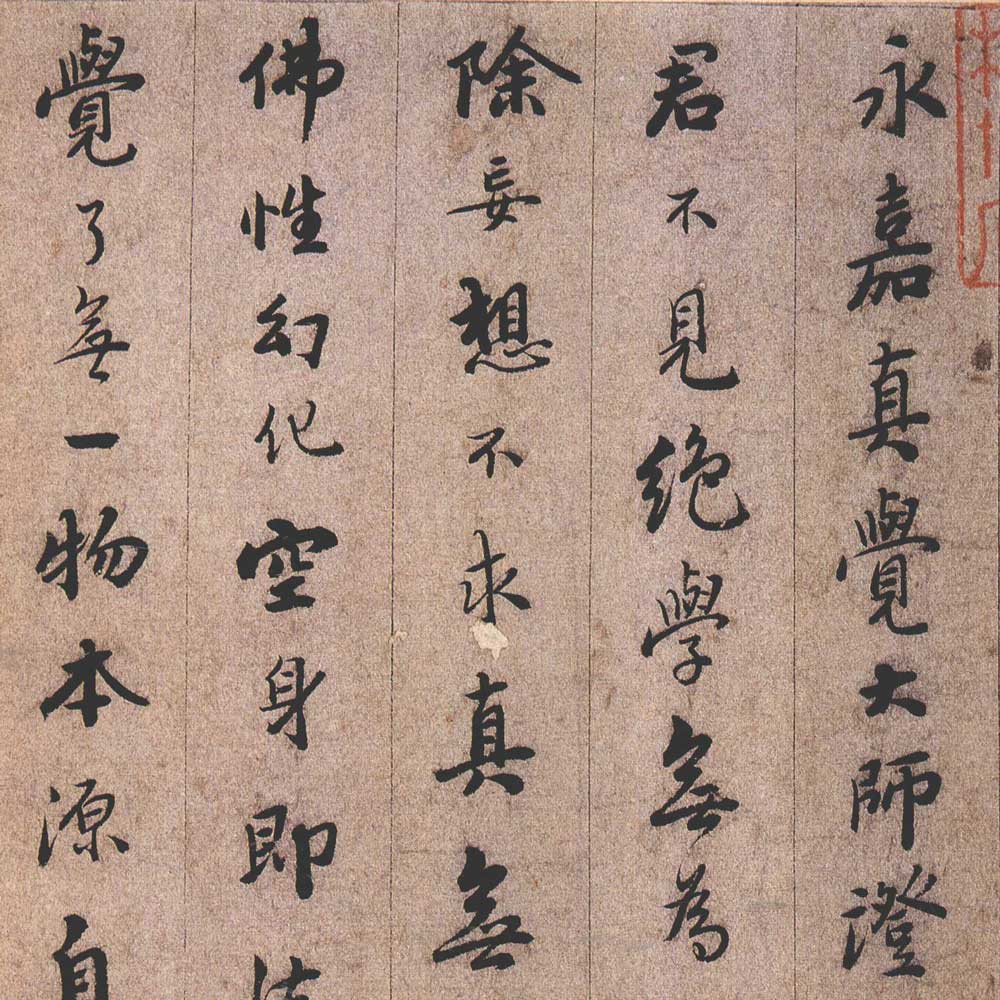 永嘉真覺大師澄
君不見絕學無為
除妄想不求真無
佛性幻化空身即法
覺了無一物本源自